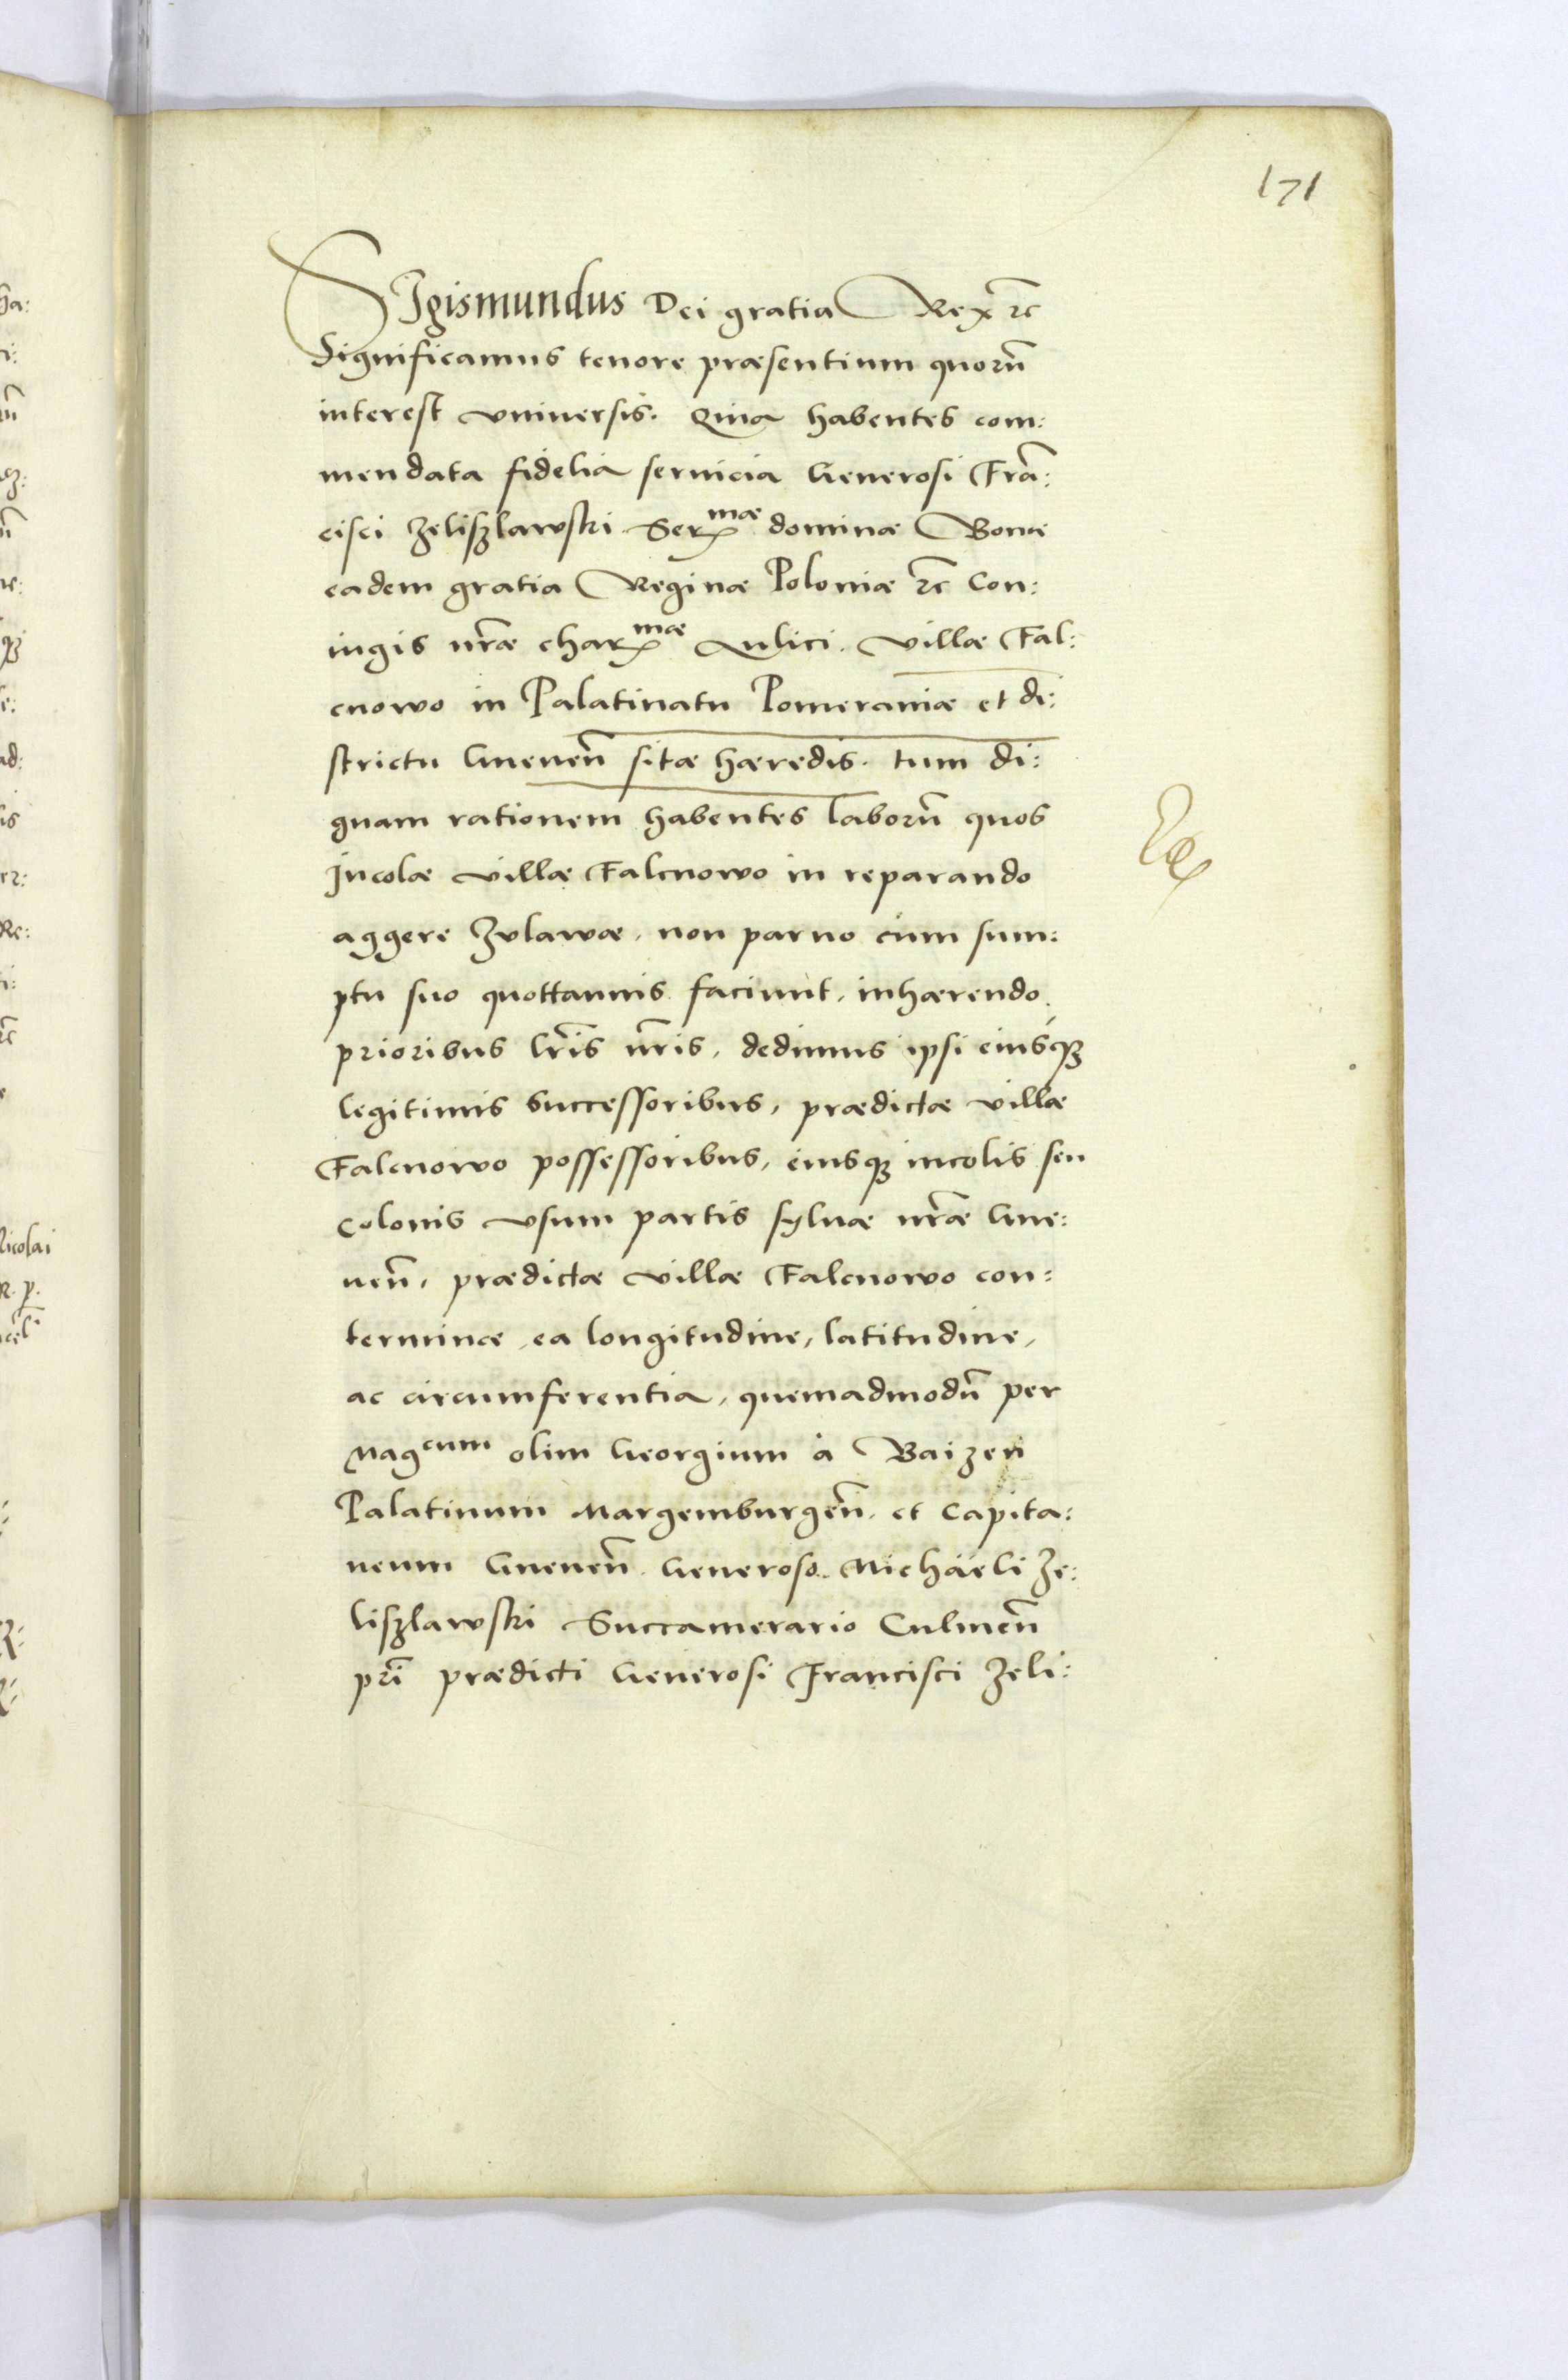 171
SIgismundus Dei gratia Rex etc
Significamus tenore præsentium quorū
interest vniuersis. Quia habentes com:
mendata fidelia seruicia Generosi Frā:
cisci Zeliszlawski Ser^mæ dominæ Bonæ
eadem gratia Reginæ Poloniæ etc Con:
iugis nr̄æ char^mæ Aulici. villæ Fal:
cnowo in Palatinatu Pomeraniæ et di:
strictu Gneuen̄ sitæ hæredis. tum di:
gnam rationem habentes laborū quos
Incolæ villæ Falcnowo in reparando
aggere Zvlawæ, non paruo cum sum:
ptu suo quottannis faciunt, inhærendo
prioribus lr̄is nr̄is, dedimus ipsi eiusq́ꝫ
legitimis Successoribus, prædictæ villæ
Falcnowo possessoribus, eiusqꝫ incolis seu
Colonis vsum partis syluæ nr̄æ Gne:
uen̄, prædictæ villæ Falcnowo con:
terminæ, ea longitudine, latitudine,
ac circumferentia, quemadmodū per
Mag^cum olim Georgium à Baizen
Palatinum Margemburgen̄. et Capita:
neum Gneuen̄. Generoso Michaeli Ze:
liszlawski Succamerario Culmen̄
pr̄i prædicti Generosi Francisci Zeli: